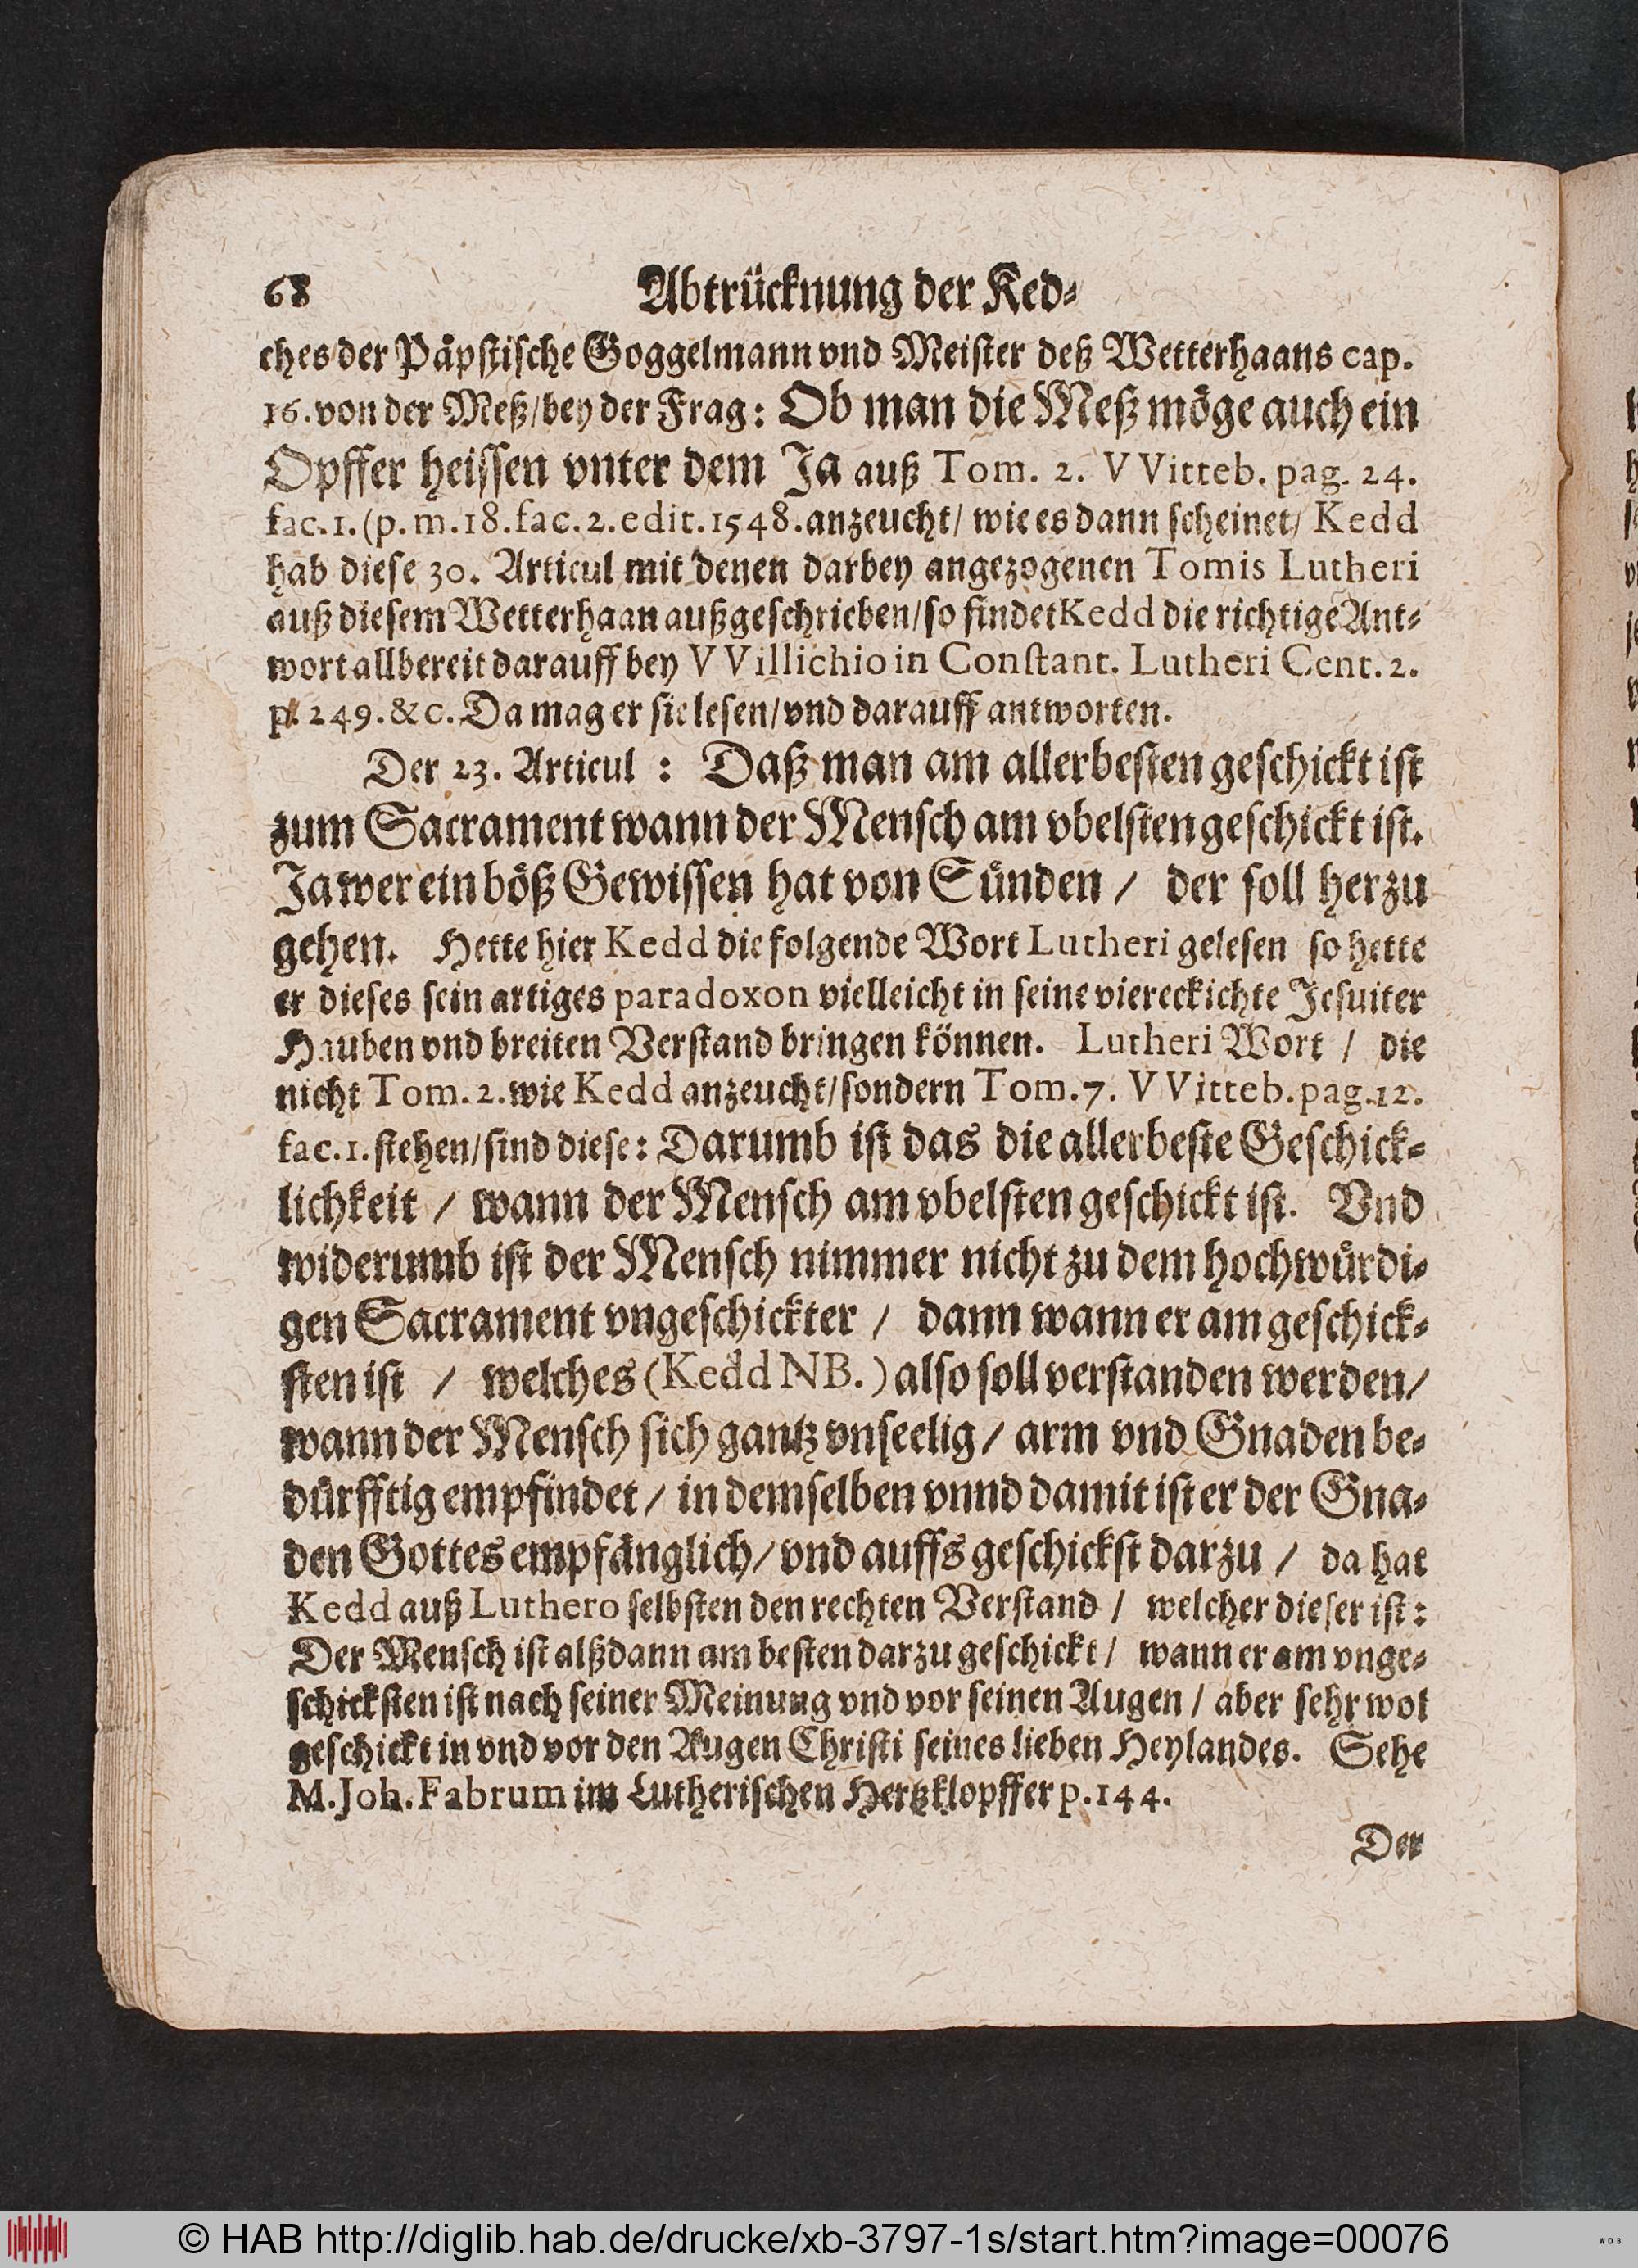 68 Abtrücknung der Ked⸗
ches/der Päpstische Goggelmann vnd Meister deß Wetterhaans cap.
16. von der Meß/bey der Frag: Ob man die Meß möge auch ein
Opffer heissen vnter dem Ja auß Tom. 2. VVitteb. pag. 24.
fac. 1. (p. m. 18. fac. 2. edit. 1548. anzeucht/ wie es dann scheinet/ Kedd
hab diese 30. Articul mit denen darbey angezogenen Tomis Lutheri
auß diesem Wetterhaan außgeschrieben/so findet Kedd die richtige Ant⸗
wort allbereit darauff bey VVillichio in Constant. Lutheri Cent. 2.
p. 249. &c. Da mag er sie lesen/vnd darauff antworten.
Der 23. Articul : Daß man am allerbesten geschickt ist
zum Sacrament wann der Mensch am vbelsten geschickt ist.
Ja wer ein böß Gewissen hat von Sünden / der soll herzu
gehen. Hette hier Kedd die folgende Wort Lutheri gelesen so hette
er dieses sein artiges paradoxon vielleicht in seine viereckichte Jesuiter
Hauben vnd breiten Verstand bringen können. Lutheri Wort / die
nicht Tom. 2. wie Kedd anzeucht/sondern Tom. 7. VVitteb. pag. 12.
fac. 1. stehen/sind diese: Darumb ist das die allerbeste Geschick⸗
lichkeit / wann der Mensch am vbelsten geschickt ist. Vnd
widerumb ist der Mensch nimmer nicht zu dem hochwürdi⸗
gen Sacrament vngeschickter / dann wann er am geschick⸗
sten ist / welches (Kedd NB.) also soll verstanden werden/
wann der Mensch sich gantz vnseelig / arm vnd Gnaden be⸗
dürfftig empfindet / in demselben vnnd damit ist er der Gna⸗
den Gottes empfänglich/vnd auffs geschickst darzu / da hat
Kedd auß Luthero selbsten den rechten Verstand / welcher dieser ist:
Der Mensch ist alßdann am besten darzu geschickt / wann er am vnge⸗
schicksten ist nach seiner Meinung vnd vor seinen Augen / aber sehr wol
geschickt in vnd vor den Augen Christi seines lieben Heylandes. Sehe
M. Joh. Fabrum im Lutherischen Hertzklopffer p. 144.
Der
© HAB http://diglib.hab.de/drucke/xb-3797-1s/start.htm?image=00076
WDB